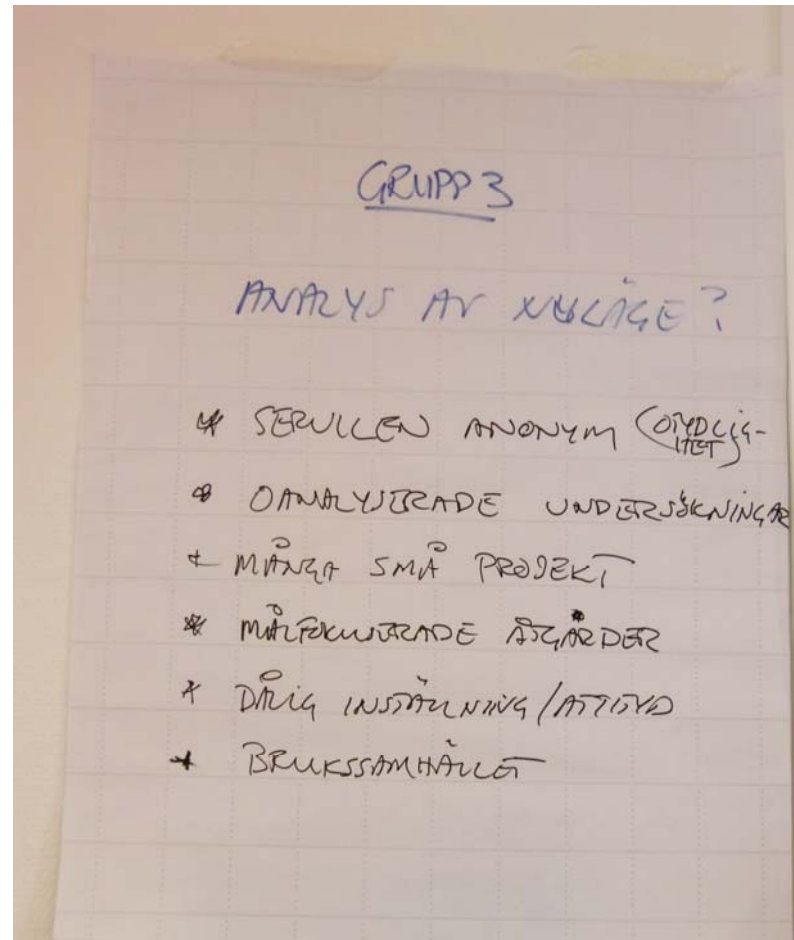 GRUPP 3
ANALYS AV NULÄGE?
* SERVICEN ANONYM (OTYDLIG-
HET)
* OANALYSERADE UNDERSÖKNINGAR
* MÅNGA SMÅ PROJEKT
* MÅLFOKUSERADE ÅTGÄRDER
* DÅLIG INSTÄLLNING/ATTITYD
* BRUKSSAMHÄLLET